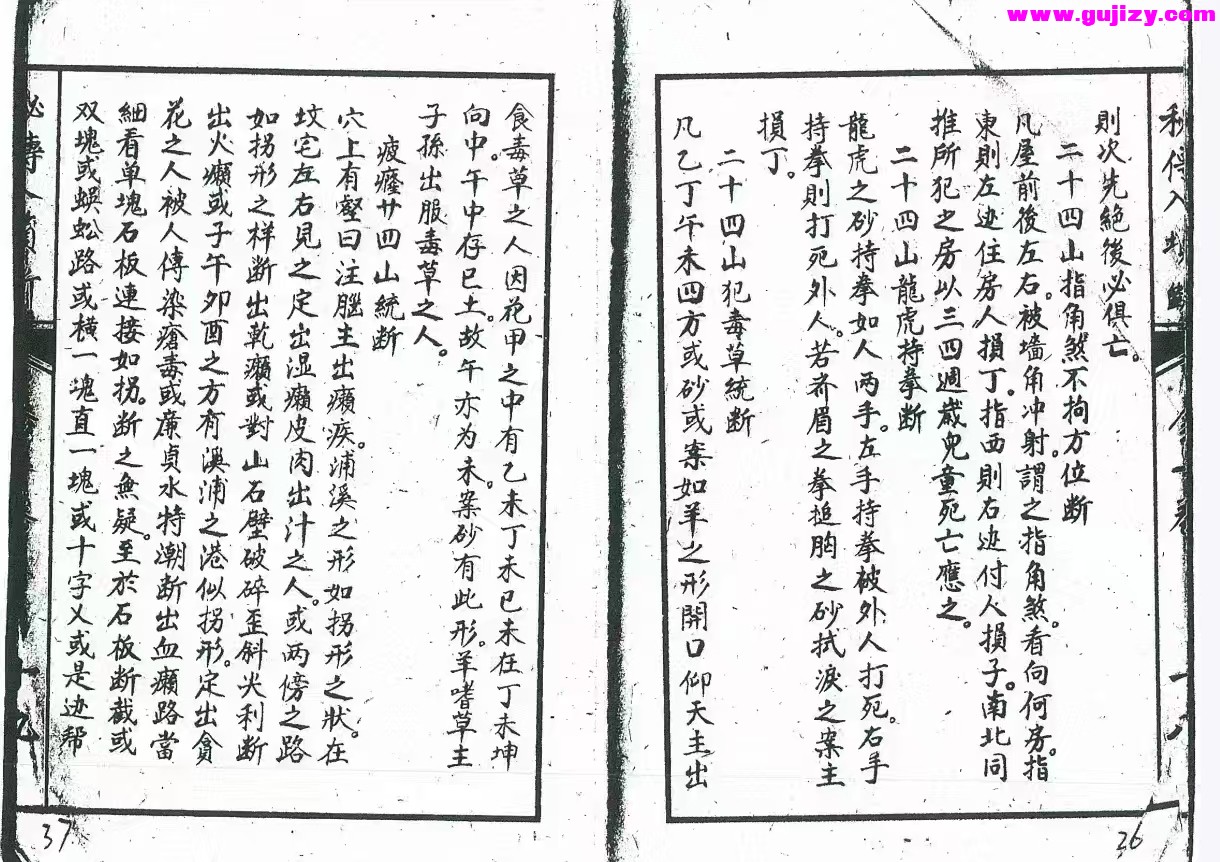 www.gujizy.com
則次先絶後必俱亡。
二十四山指角煞不拘方位断
凡屋前後左右。被墻角冲射。謂之指角煞。看向何房。指
東則左边住房人損丁。指西則右边付人損子。南北同
推所犯之房以三四週歲兒童死亡應之。
二十四山龍虎持拳断
龍虎之砂持拳如人两手。左手持拳被外人打死。右手
持拳則打死外人。若齐眉之拳搥胸之砂拭淚之案主
損丁。
二十四山犯毒草統断
凡乙丁午未四方或砂或案如羊之形開口仰天主出
36
食毒草之人因花甲之中有乙未丁未已未在丁未坤
向中。午中存已土。故午亦为未。案砂有此形。羊嗜草主
子孫出服毒草之人。
疲癃廿四山統断
穴上有壑曰注腦主出癩疾。浦溪之形如拐形之狀。在
坟宅左右見之定出湿癩皮肉出汁之人。或两傍之路
如拐形之样断出乾癩或對山石壁破碎歪斜尖利断
出火癩或子午夘酉之方有溪浦之港似拐形。定出貪
花之人被人傳染瘡毒或廉貞水特潮断出血癩路當
細看单塊石板連接如拐。断之無疑。至於石板断截或
双塊或蜈蚣路或横一塊直一塊或十字乂或是边帮
37